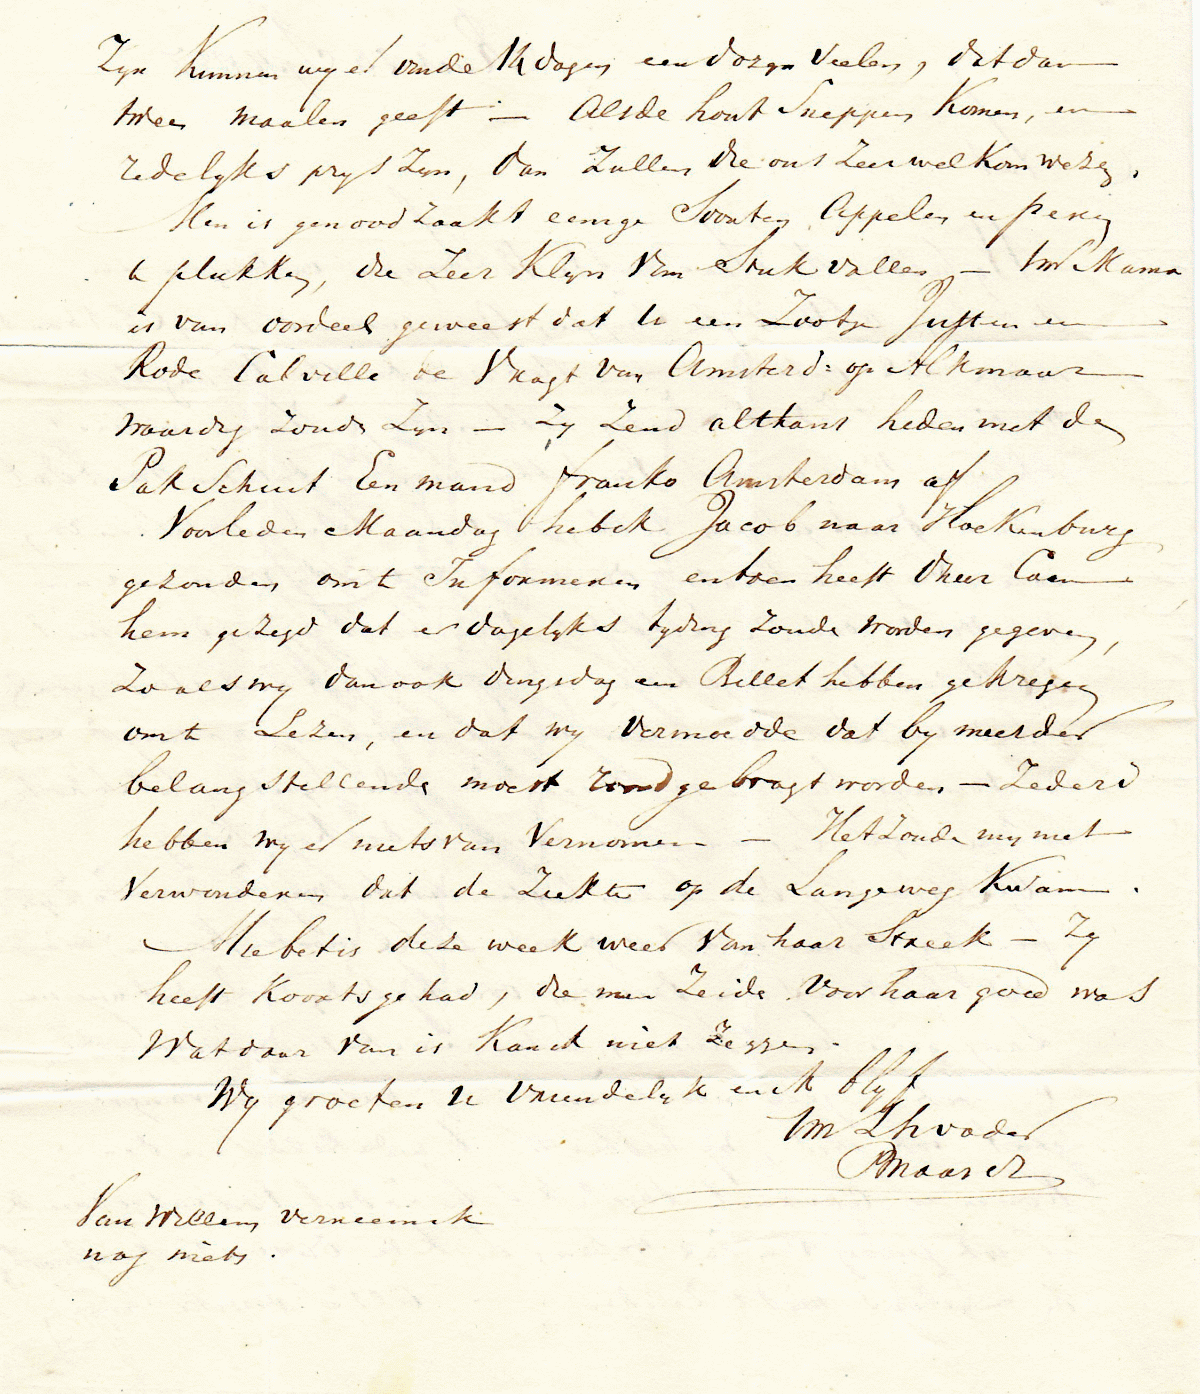 Zyn Kunnen wy er om de 14 dagen een dozyn veelen, dit dan
twee maalen geeft — Als de hout Sneppen Komen, en
redelyks prys Zyn, dan Zullen die ons Zeer welkom wezen.
Men is genoodzaakt eenige Soorten Appelen en peren
te plukken, die Zeer Klyn van Stuk vallen — Uw Mama
is van oordeel geweest dat U een Zootje Juffen en
Rode Calville de Vragt van Amsterd: op Alkmaar
waardig Zoude Zyn — Zy Zend althans heden met de
Pak Schuit Een mand franko Amsterdam af
Voorleden Maandag heb ik Jacob naar Hoekenburg
gezonden om te Informeren en toen heeft d'heer Caan
hem gezegd dat er dagelyks tyding Zoude worden gegeven,
Zo als wy dan ook dingsdag een Billet hebben gekregen
om te Lezen, en dat wy vermoedde dat by meerder
belangstellende moest rond gebragt worden — Zederd
hebben wy er niets van Vernomen — Het Zoude my niet
Verwonderen dat de Ziekte op de Langeweg Kwam.
Miebet is deze week weer van haar Streek — Zy
heeft Koorts gehad, die men Zeide Voor haar goed was
Wat daar van is Kan ik niet Zeggen.
Wy groeten U vriendelyk en ik blyf
Uw Lh vader
Van Willem verneem ik
nog niets.